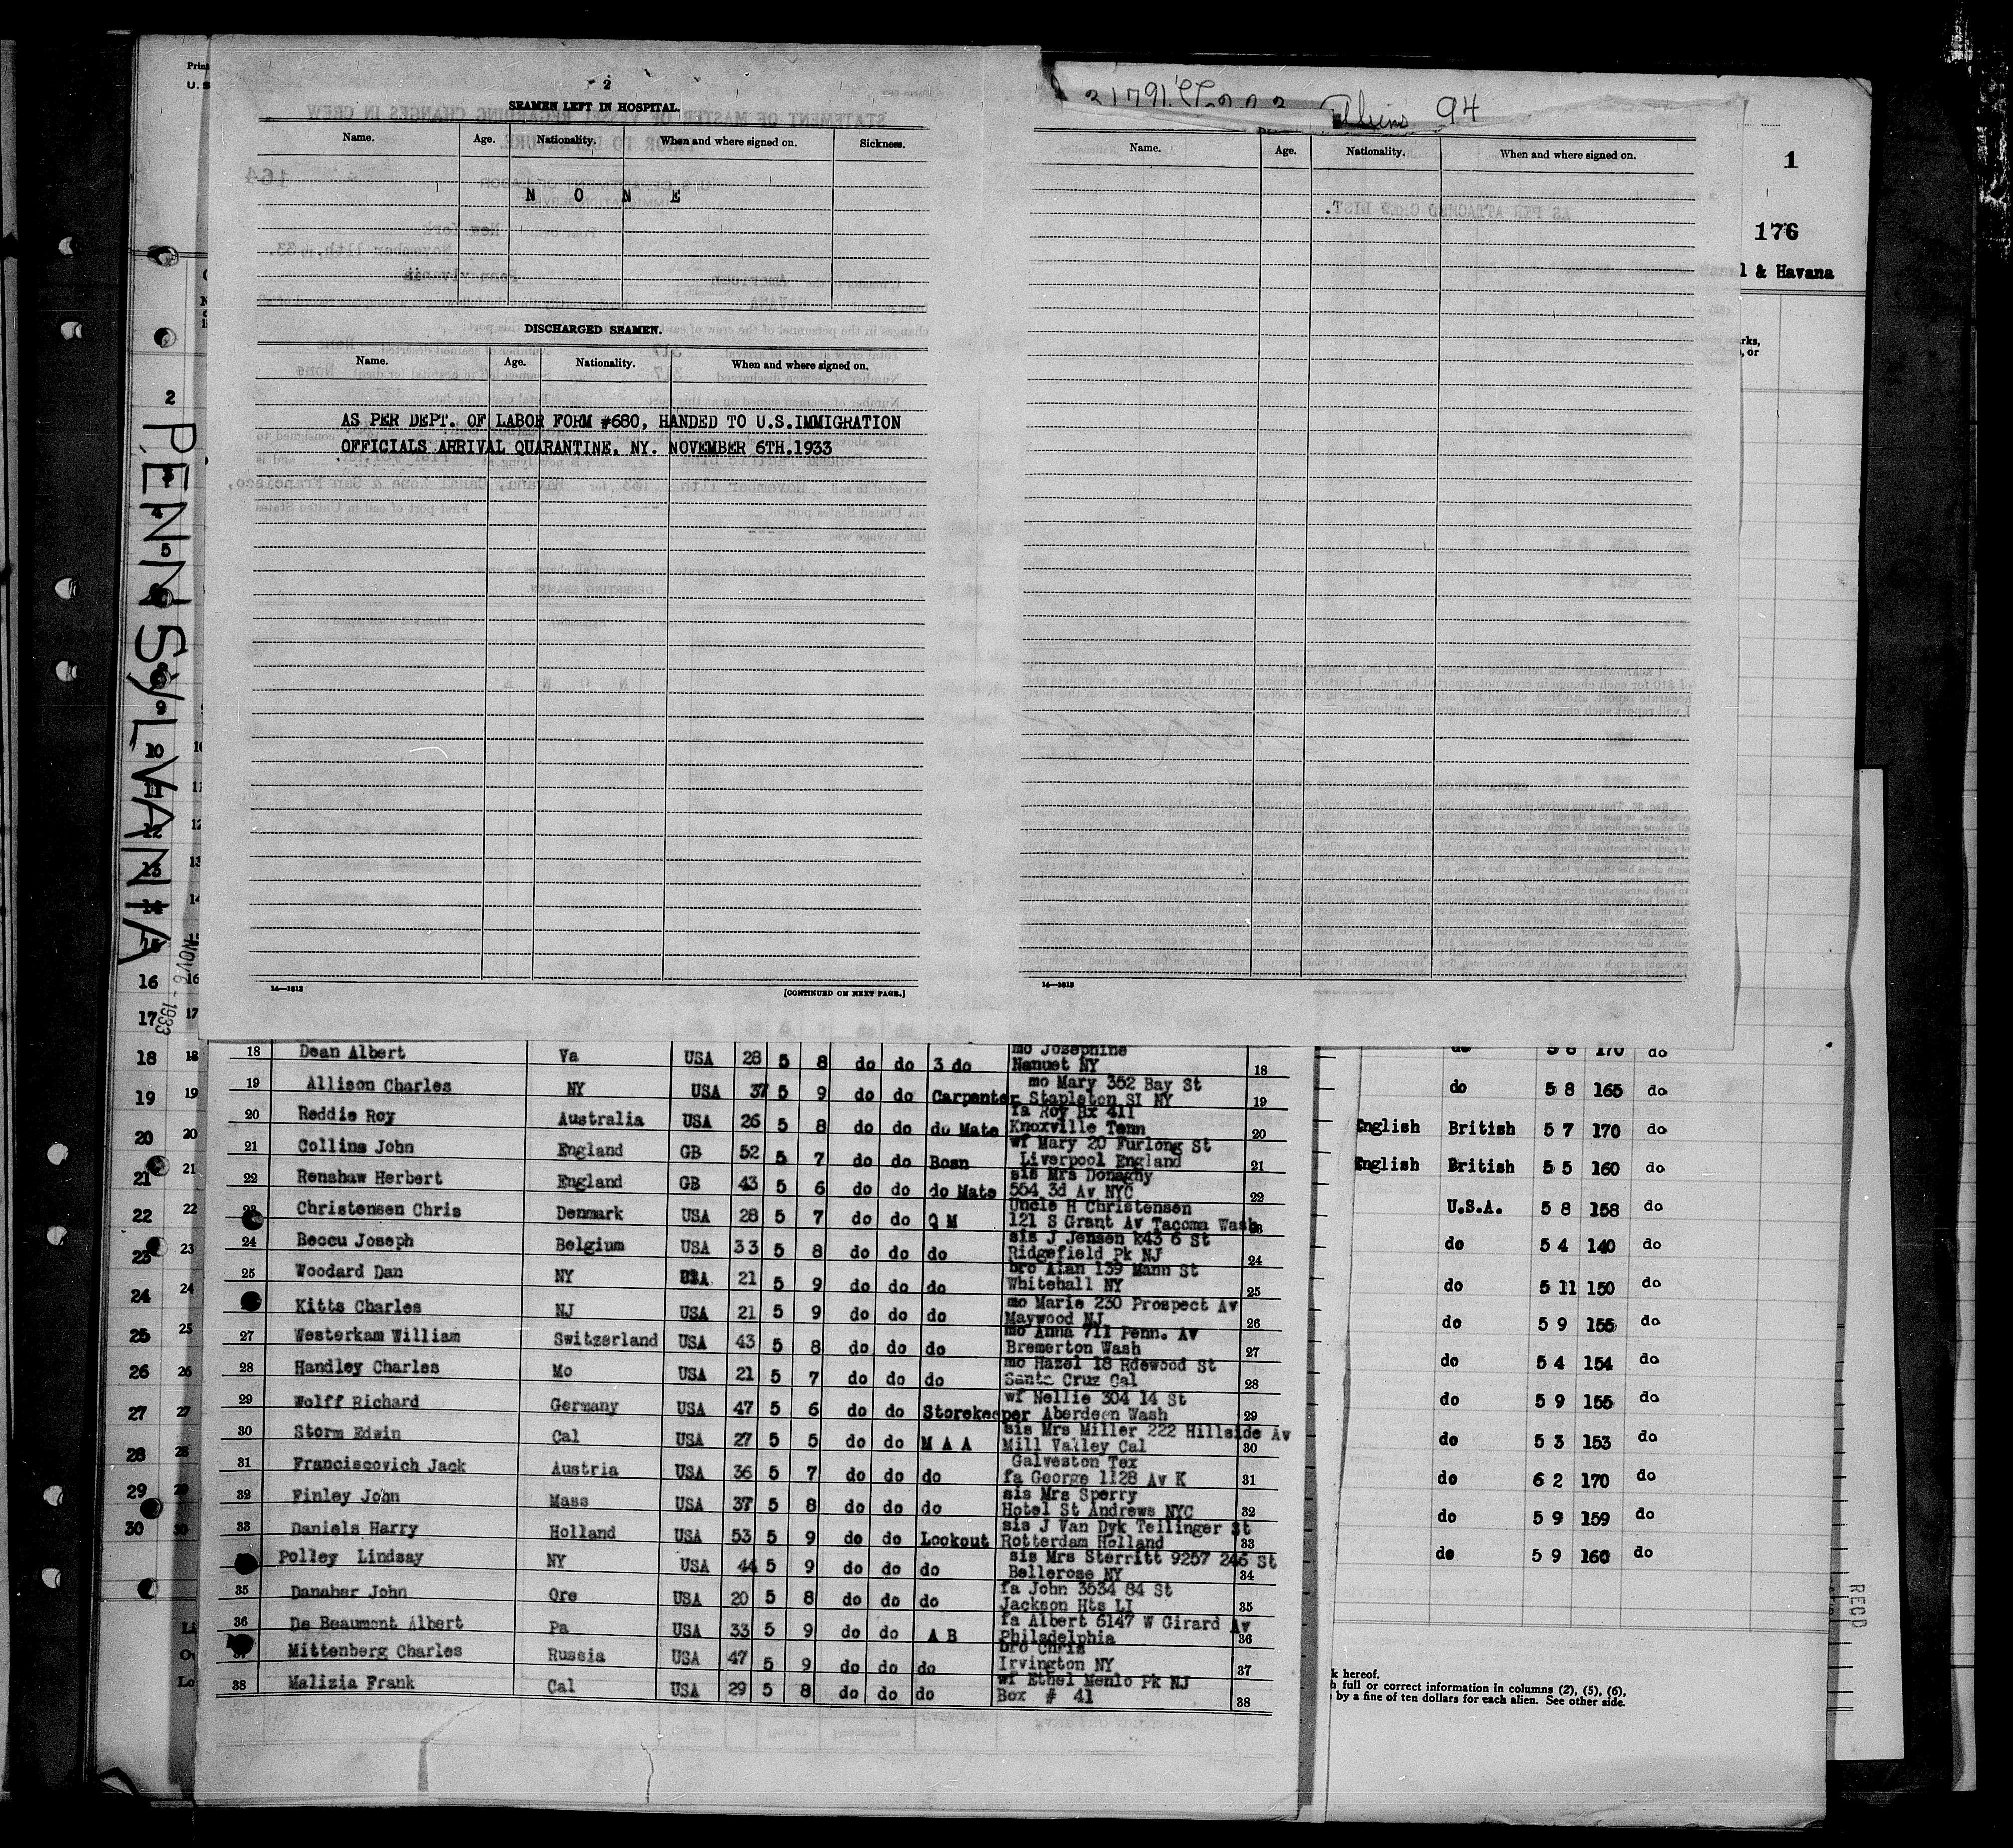 2
SEAMEN LEFT IN HOSPITAL.
Name. Age. Nationality. When and where signed on. Sickness.
N O N E
DISCHARGED SEAMEN.
Name. Age. Nationality. When and where signed on.
AS PER DEPT. OF LABOR FORM #680, HANDED TO U.S.IMMIGRATION
OFFICIALS ARRIVAL QUARANTINE, NY. NOVEMBER 6TH.1933
14—1613
[CONTINUED ON NEXT PAGE.]
94
Name. Age. Nationality. When and where signed on.
14—1613
1
176
l & Havana
rks,
, or
PENNSYLVANIA
NOV 6 - 1933
18 Dean Albert Va USA 28 5 8 do do 3 do mo Josephine
Nanuet NY 18
19 Allison Charles NY USA 37 5 9 do do Carpenter mo Mary 352 Bay St
Stapleton SI NY 19
20 Reddie Roy Australia USA 26 5 8 do do do Mate fa Roy Bx 411
Knoxville Tenn 20
21 Collins John England GB 52 5 7 do do Bosn wf Mary 20 Furlong St
Liverpool England 21
22 Renshaw Herbert England GB 43 5 6 do do do Mate sis Mrs Donaghy
554 3d Av NYC 22
23 Christensen Chris Denmark USA 28 5 7 do do Q M Uncle H Christensen
121 S Grant Av Tacoma Wash 23
24 Beccu Joseph Belgium USA 33 5 8 do do do sis J Jensen k43 6 St
Ridgefield Pk NJ 24
25 Woodard Dan NY USA 21 5 9 do do do bro Alan 139 Mann St
Whitehall NY 25
Kitts Charles NJ USA 21 5 9 do do do mo Marie 230 Prospect Av
Maywood NJ 26
27 Westerkam William Switzerland USA 43 5 8 do do do mo Anna 711 Penn. Av
Bremerton Wash 27
28 Handley Charles Mo USA 21 5 7 do do do mo Hazel 18 Rdewood St
Santa Cruz Cal 28
29 Wolff Richard Germany USA 47 5 6 do do Storekeeper wf Nellie 304 14 St
Aberdeen Wash 29
30 Storm Edwin Cal USA 27 5 5 do do M A A sis Mrs Miller 222 Hillside Av
Mill Valley Cal 30
31 Franciscovich Jack Austria USA 36 5 7 do do do Galveston Tex
fa George 1128 Av K 31
32 Finley John Mass USA 37 5 8 do do do sis Mrs Sperry
Hotel St Andrews NYC 32
33 Daniels Harry Holland USA 53 5 9 do do Lookout sis J Van Dyk Teilinger St
Rotterdam Holland 33
Polley Lindsay NY USA 44 5 9 do do do sis Mrs Sterritt 9257 246 St
Bellerose NY 34
35 Danaher John Ore USA 20 5 8 do do do fa John 3534 84 St
Jackson Hts LI 35
36 De Beaumont Albert Pa USA 33 5 9 do do A B fa Albert 6147 W Girard Av
Philadelphia 36
37 Mittenberg Charles Russia USA 47 5 9 do do do bro Chris
Irvington NY 37
38 Malizia Frank Cal USA 29 5 8 do do do wf Ethel Menlo Pk NJ
Box # 41 38
do 5 8 170 do
do 5 8 165 do
English British 5 7 170 do
English British 5 5 160 do
U.S.A. 5 8 158 do
do 5 4 140 do
do 5 11 150 do
do 5 9 155 do
do 5 4 154 do
do 5 9 155 do
do 5 3 153 do
do 6 2 170 do
do 5 9 159 do
do 5 9 160 do
k hereof.
h full or correct information in columns (2), (5), (6),
by a fine of ten dollars for each alien. See other side.
RECD